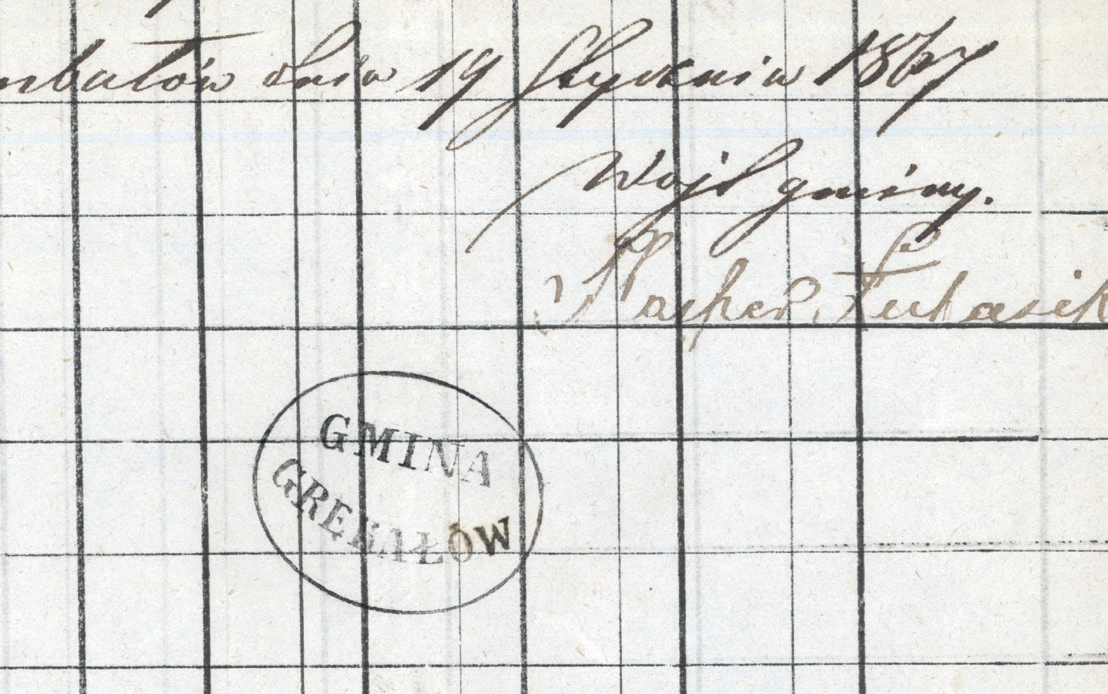 mbałów dnia 19 Stycznia 1867
Wojt gminy.
Kasper Łukasik
GMINA
GRĘBAŁÓW